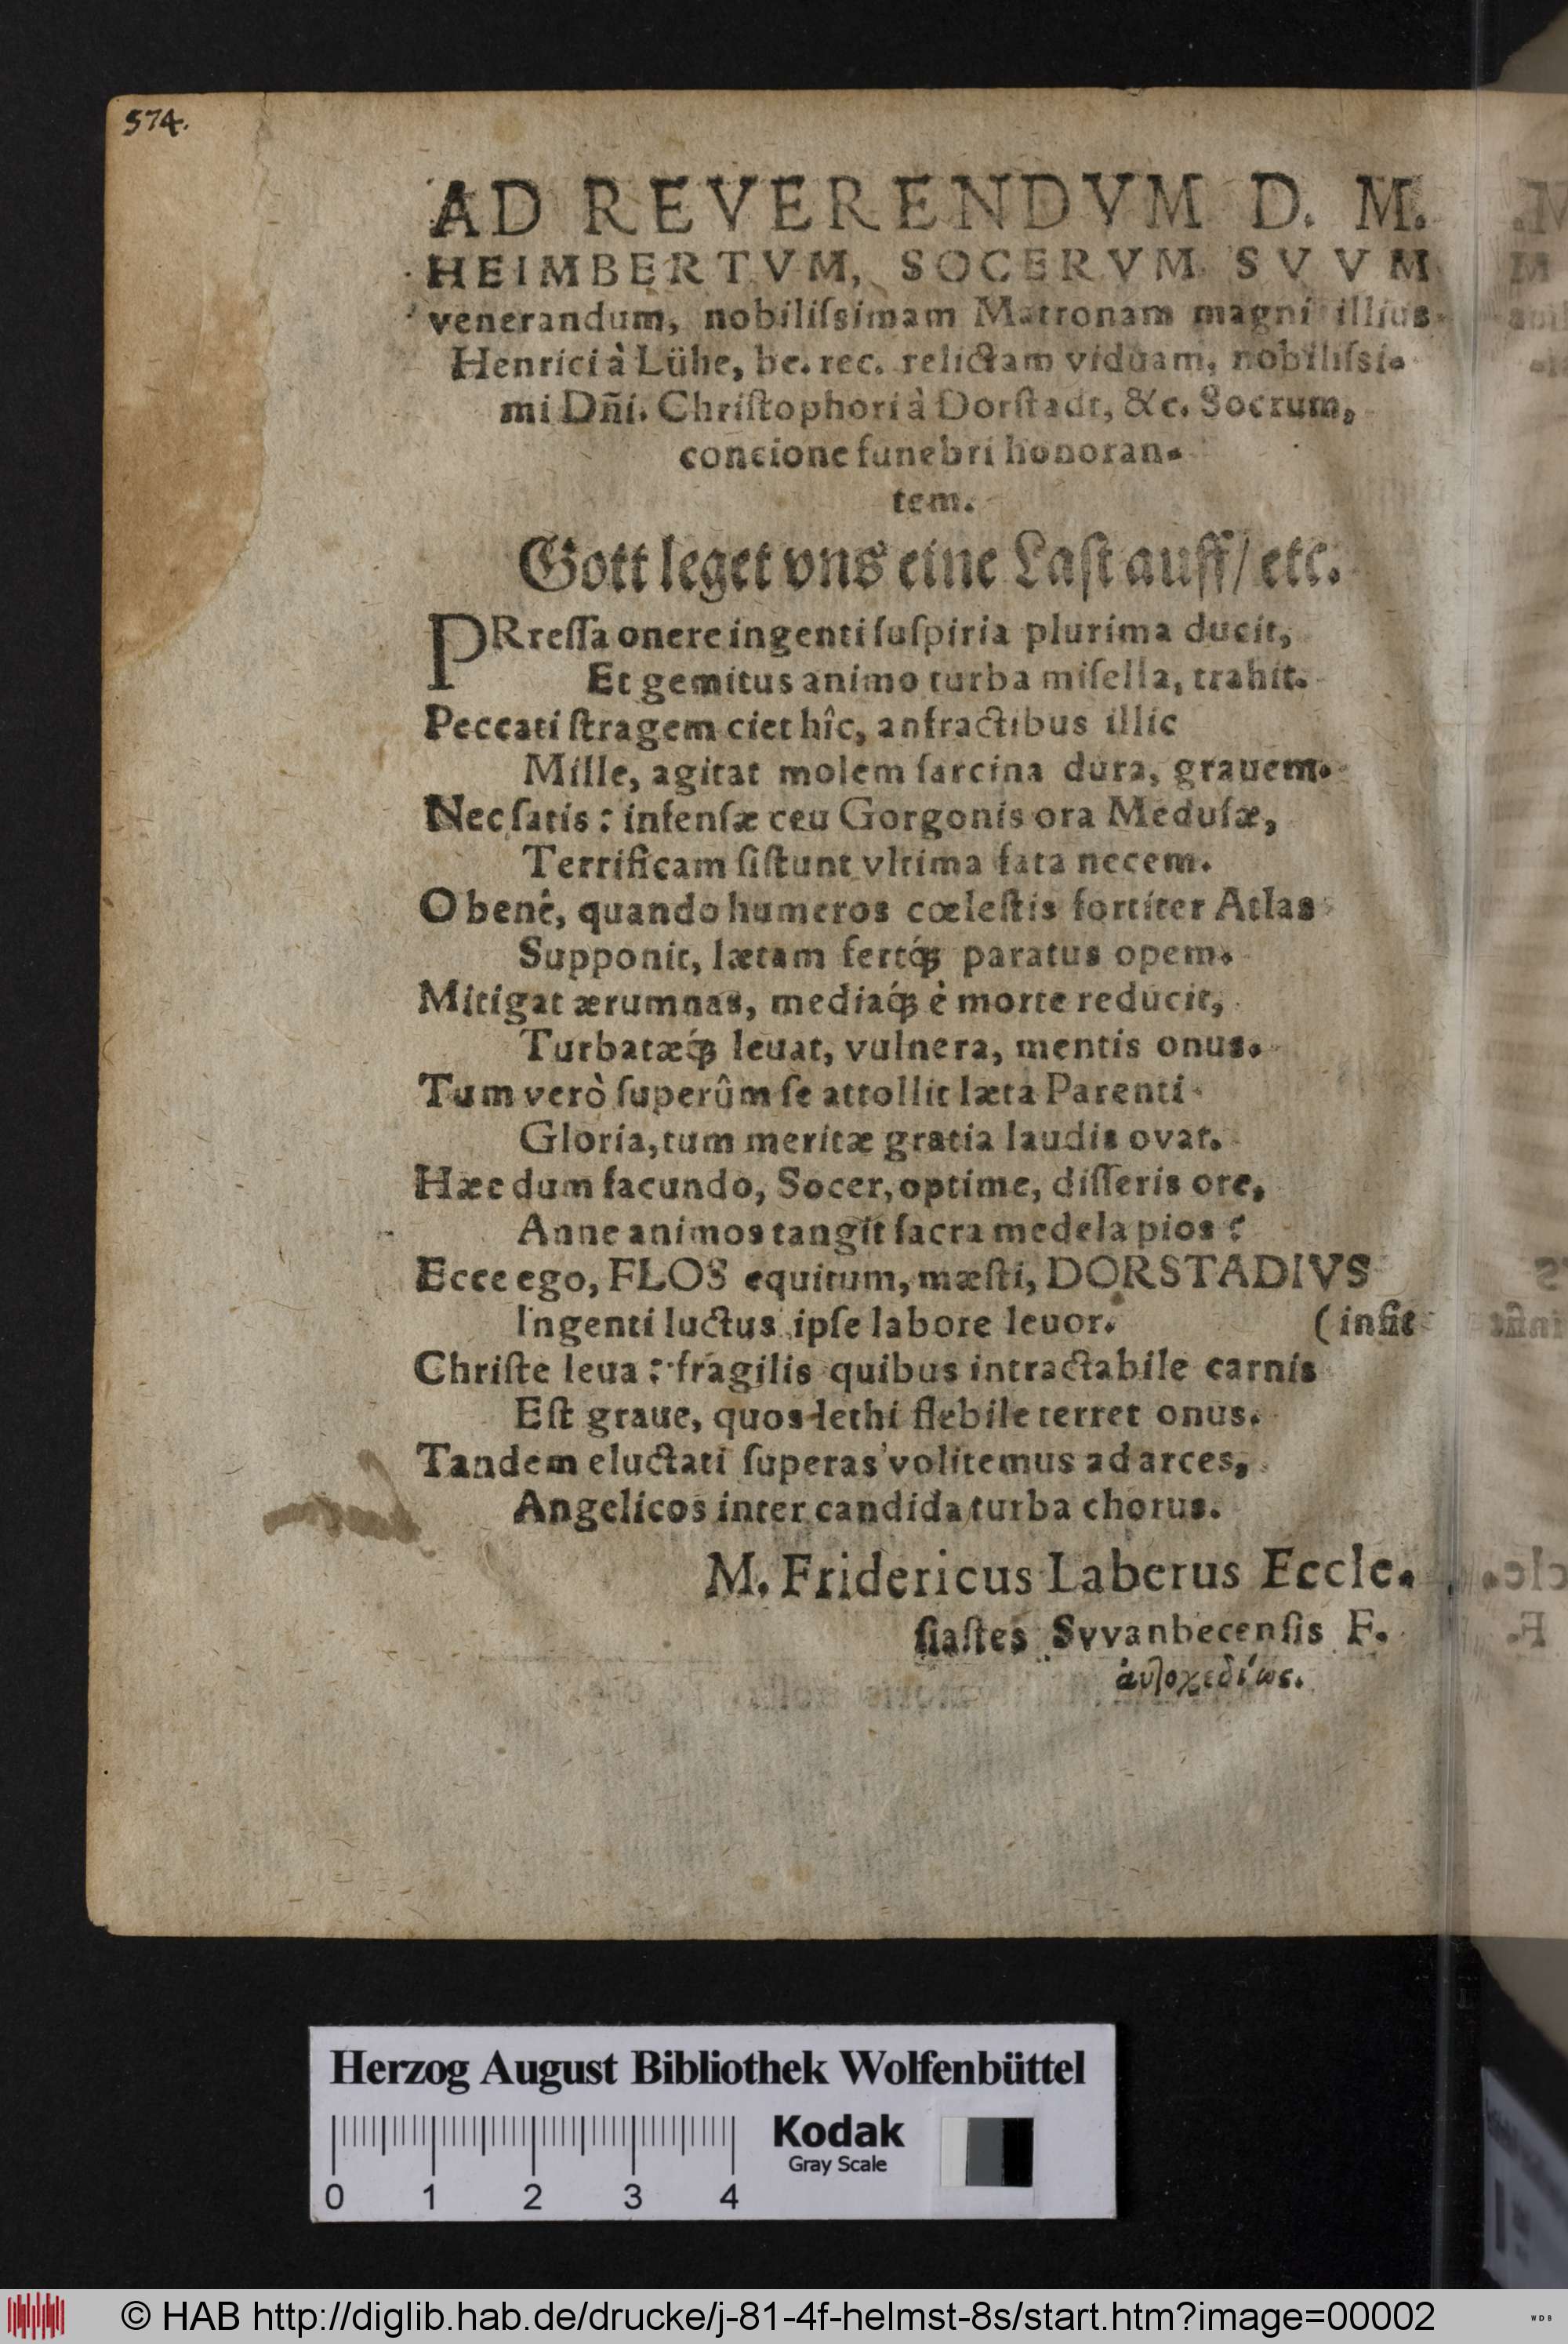 574.
AD REVERENDVM D. M.
HEIMBERTVM, SOCERVM SVVM
venerandum, nobiliſsimam Matronam magni illius
Henrici à Lühe, be. rec. relictam viduam, nobiliſsi-
mi Dñi. Chriſtophori à Dorſtadt, &c. Socrum,
concione funebri honoran-
tem.
Gott leget vns eine Laſt auff/ etc.
PRreſſa onere ingenti ſuſpiria plurima ducit,
Et gemitus animo turba miſella, trahit.
Peccati ſtragem ciet hîc, anfractibus illic
Mille, agitat molem ſarcina dura, grauem.
Nec ſatis: infenſæ ceu Gorgonis ora Meduſæ,
Terrificam ſiſtunt vltima fata necem.
O benè, quando humeros cœleſtis fortiter Atlas
Supponit, lætam fertq́; paratus opem.
Mitigat ærumnas, mediaq́; è morte reducit,
Turbatæq́; leuat, vulnera, mentis onus.
Tum verò ſuperûm ſe attollit læta Parenti
Gloria, tum meritæ gratia laudis ovat.
Hæc dum facundo, Socer, optime, diſſeris ore,
Anne animos tangit ſacra medela pios?
Ecce ego, FLOS equitum, mæſti, DORSTADIVS
Ingenti luctus ipſe labore leuor. (inſit
Chriſte leua: fragilis quibus intractabile carnis
Eſt graue, quos lethi flebile terret onus.
Tandem eluctati ſuperas volitemus ad arces,
Angelicos inter candida turba chorus.
M. Fridericus Laberus Eccle-
ſiaſtes Svvanbecenſis F.
αὐτοχεδίως.
Herzog August Bibliothek Wolfenbüttel
Kodak
Gray Scale
0 1 2 3 4
© HAB http://diglib.hab.de/drucke/j-81-4f-helmst-8s/start.htm?image=00002
WDB